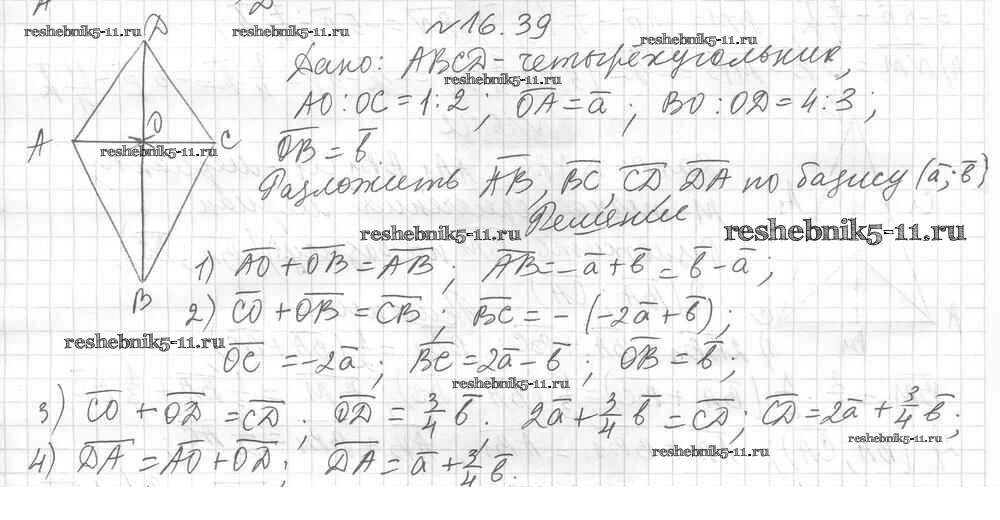 D
reshebnik5-11.ru
reshebnik5-11.ru
№16.39
reshebnik5-11.ru
Дано: ABCD - четырёхугольник,
reshebnik5-11.ru
AO : OC = 1:2 ; \overline{OA} = \overline{a} ; BO : OD = 4:3 ;
O
A
C
reshebnik5-11.ru
\overline{OB} = \overline{b}
Разложить \overline{AB}, \overline{BC}, \overline{CD}, \overline{DA} по базису (\overline{a}; \overline{b})
Решение
reshebnik5-11.ru
reshebnik5-11.ru
1) \overline{AO} + \overline{OB} = \overline{AB} ; \overline{AB} = -\overline{a} + \overline{b} = \overline{b} - \overline{a} ;
B
2) \overline{CO} + \overline{OB} = \overline{CB} ; \overline{BC} = -(-2\overline{a} + \overline{b}) ;
reshebnik5-11.ru
\overline{OC} = -2\overline{a} ; \overline{BC} = 2\overline{a} - \overline{b} ; \overline{OB} = \overline{b} ;
reshebnik5-11.ru
3) \overline{CO} + \overline{OD} = \overline{CD} ; \overline{OD} = \frac{3}{4} \overline{b} . 2\overline{a} + \frac{3}{4} \overline{b} = \overline{CD} ; \overline{CD} = 2\overline{a} + \frac{3}{4} \overline{b} ;
reshebnik5-11.ru
reshebnik5-11.ru
4) \overline{DA} = \overline{AO} + \overline{OD} ; \overline{DA} = \overline{a} + \frac{3}{4} \overline{b} .